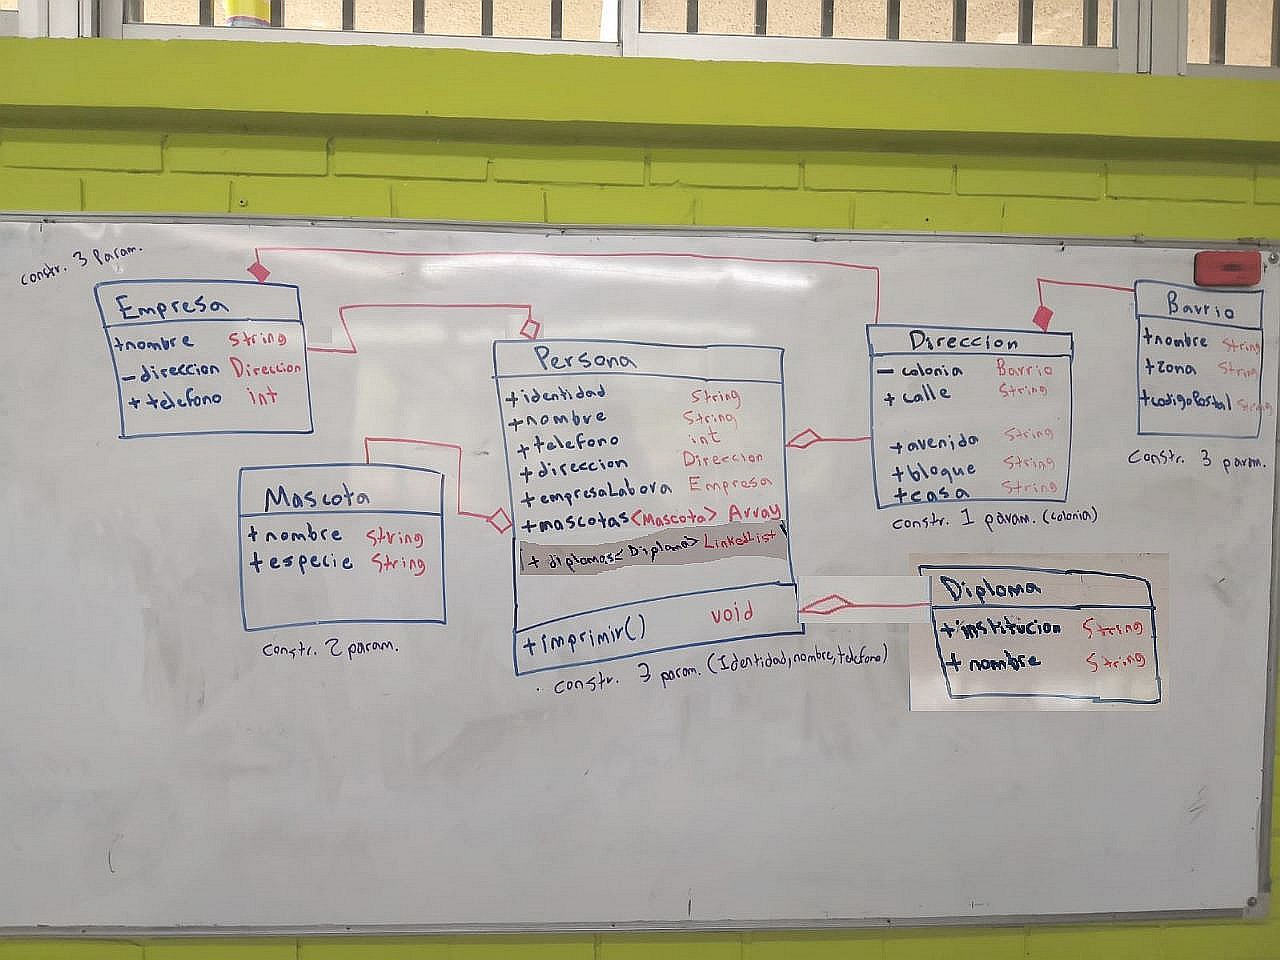 constr. 3 Param.
Empresa
+nombre String
-direccion Direccion
+telefono int
Mascota
+nombre String
+especie String
constr. 2 param.
Persona
+identidad String
+nombre String
+telefono int
+direccion Direccion
+empresaLabora Empresa
+mascotas<Mascota> Array
+diplomas<Diploma> LinkedList
+imprimir() void
constr. 3 param. (Identidad, nombre, telefono)
Direccion
-colonia Barrio
+calle String
+avenida String
+bloque String
+casa String
constr. 1 param. (colonia)
Barrio
+nombre String
+zona String
+codigoPostal String
Constr. 3 param.
Diploma
+institucion String
+nombre String